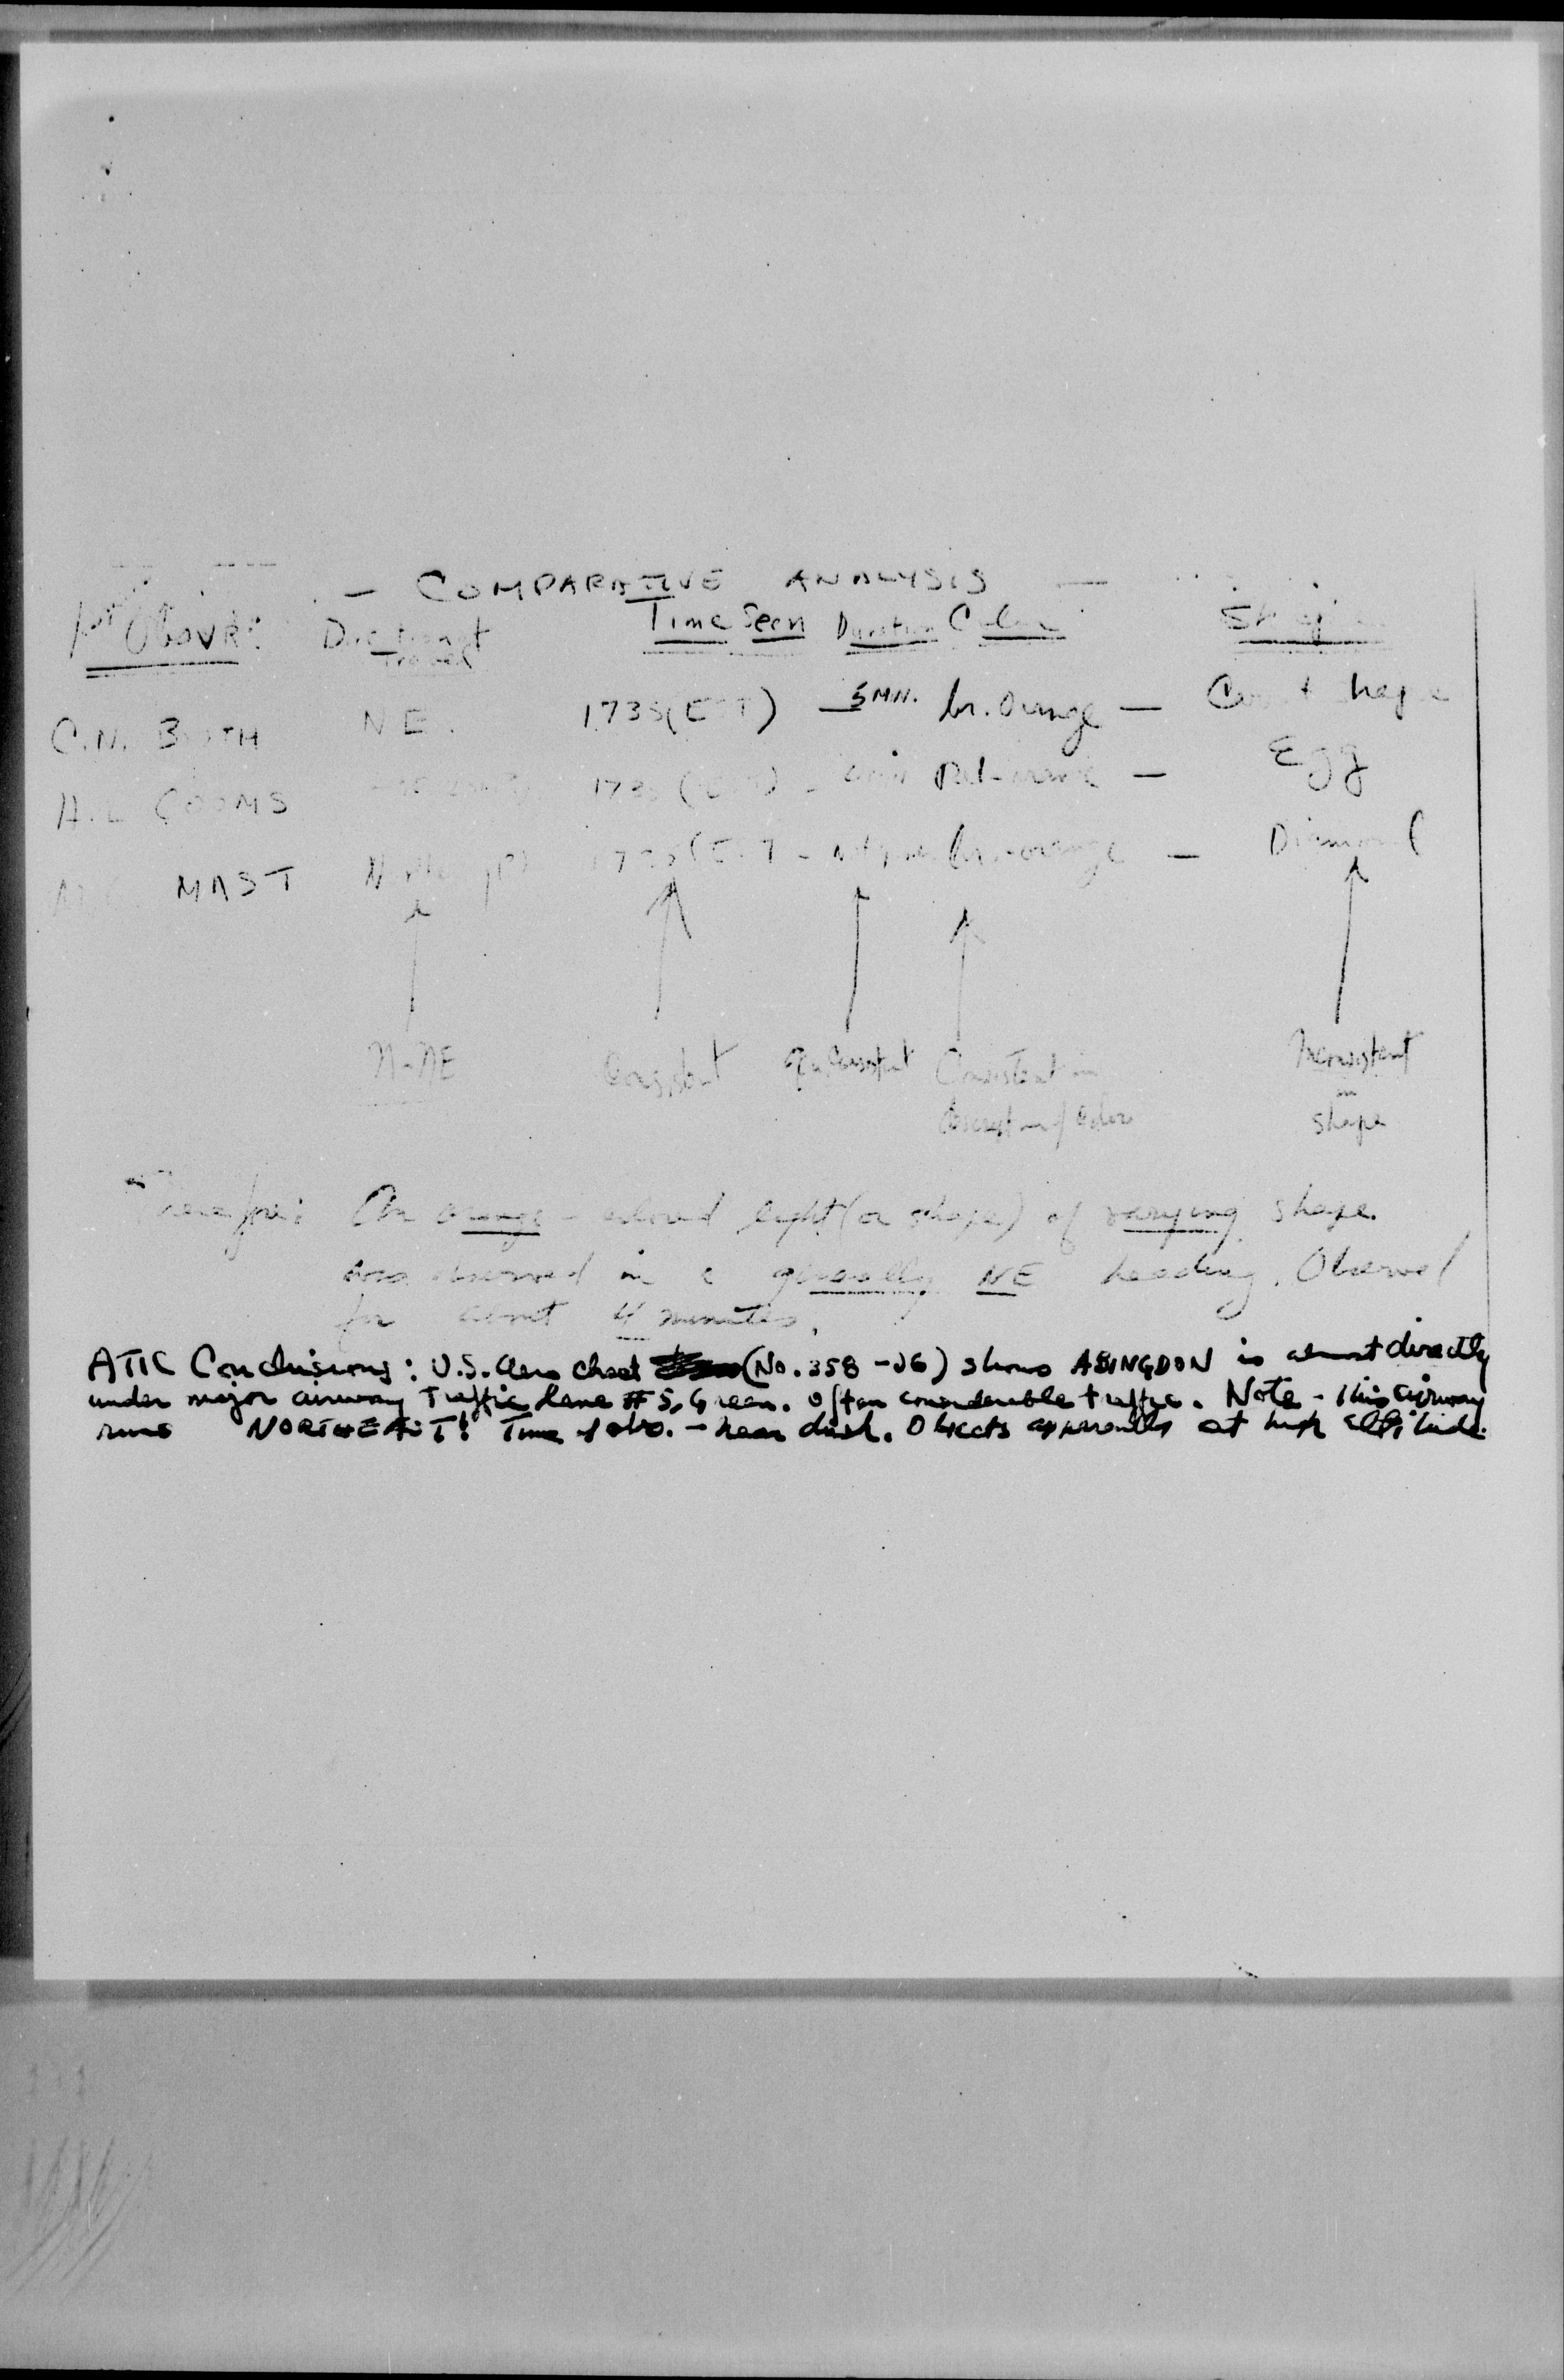 — COMPARATIVE ANALYSIS —
Obsvr: Direction of Travel Time Seen Duration Color Shape
C.N. BOTH NE. 1735(EST) — 5 MN. br. Orange — shape
H.L COOMS 173 — — Egg
MAST br.-orange — Diamond
N-NE Consistent Consistent in Inconsistent
description of color in
shape
Therefore: An orange-colored light (or shape) of varying shape.
was observed in a generally NE heading. Observed
for about 4 minutes.
ATIC Conclusions: U.S. Aero Chart (No. 358-26) shows ABINGDON is almost directly
under major airway Traffic Lane #5, Green. Often considerable traffic. Note - this airway
runs NORTHEAST! Time of obs. - near dusk. Objects apparently at high altitude.